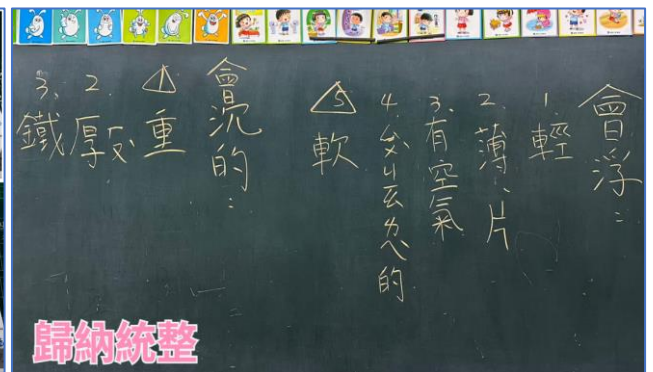 會浮:
1. 輕
2. 薄、片
3. 有空氣
4. 的
5 軟
會沉的:
1 重
2. 厚
3. 鐵
歸納統整